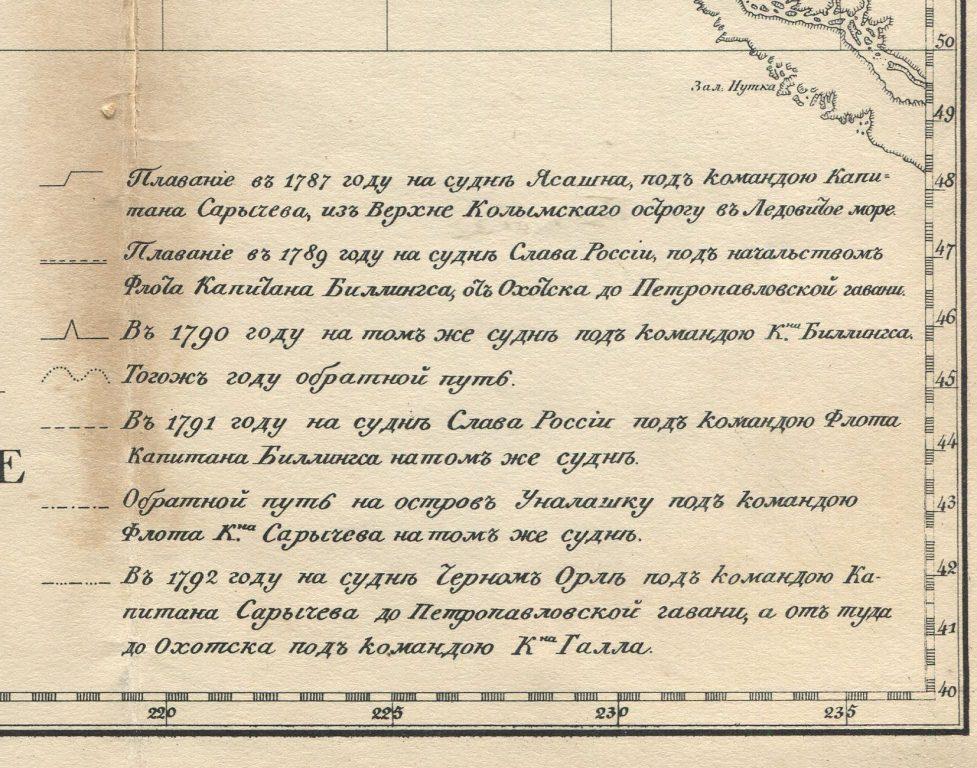 50
Зал. Нутка
49
48
Плаваніе въ 1787 году на суднѣ Ясашна, подъ командою Капи=
тана Сарычева, изъ Верхне Колымскаго острогу въ Ледовитое море.
47
Плаваніе въ 1789 году на суднѣ Слава Россіи, подъ начальствомъ
Флота Капитана Биллингса, отъ Охотска до Петропавловской гавани.
46
Въ 1790 году на томъ же суднѣ подъ командою К.на Биллингса.
45
Тогожъ году обратной путь.
Въ 1791 году на суднѣ Слава Россіи подъ командою Флота
44
Капитана Биллингса на томъ же суднѣ.
Е
43
Обратной путь на островъ Уналашку подъ командою
Флота К.на Сарычева на томъ же суднѣ.
42
Въ 1792 году на суднѣ Черномъ Орлѣ подъ командою Ка-
питана Сарычева до Петропавловской гавани, а отъ туда
41
до Охотска подъ командою К.на Галла.
40
220 225 230 235